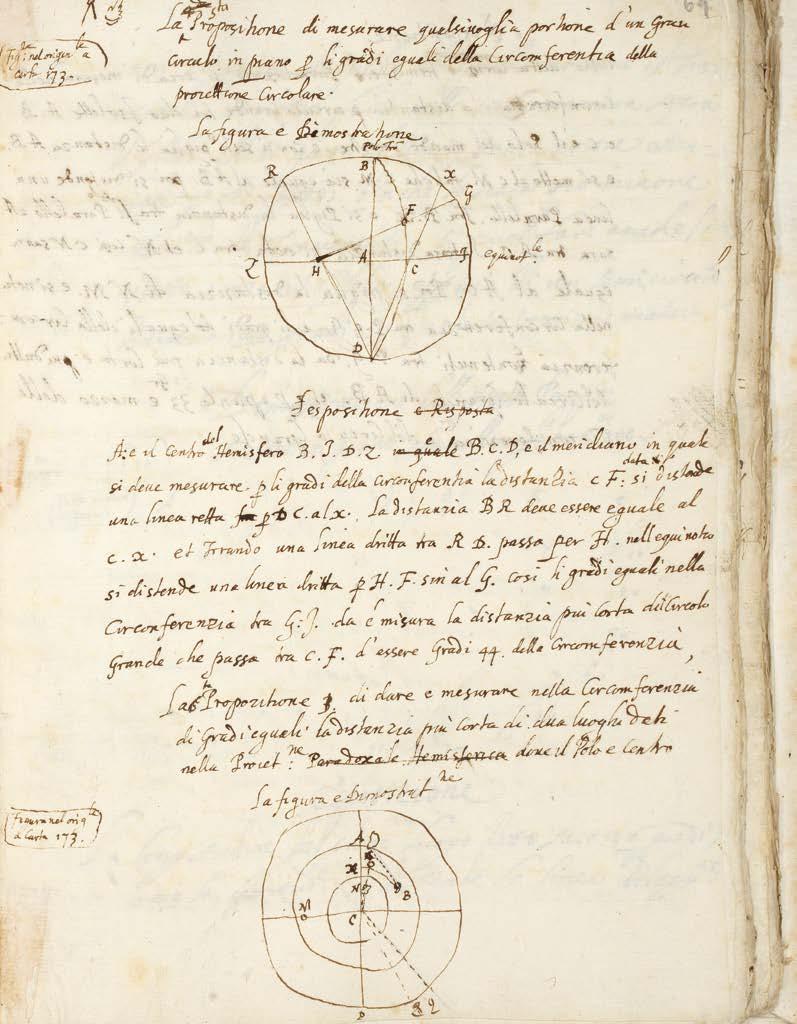 La 5ta Propositione di mesurare qualsivoglia portione d'un Gran
Circulo in piano p li gradi eguali della Circomferentia della
proiettione Circolare.
Figra nel origle a
carta 173.
La figura e Dimostratione
Polo
B
R
X
G
F
Z
H
A
C
J
equinotle
D
Espositione e Risposta
A: e il Centro del Hemisfero B. J. D. Z in quale B. C. D, e il meridiano in quale
si deve mesurare p li gradi della Circonferentia la distanzia data C F: si distende
una linea retta p D C. al x. La distanzia B R deve essere eguale al
C. x. et Tirando una linea dritta tra R D. passa per H. nell equinotio
si distende una linea dritta p H. F. sin al G. Cosi li gradi eguali nella
Circonferenzia tra G: J. da e misura la distanzia più Corta del Circolo
Grande che passa tra C. F. d'essere Gradi 44. della Circomferenzia,
La 6ta Propozitione di dare e mesurare nella Circomferenzia
di Gradi eguali la distanzia più Corta di dua luoghi dati
nella Proietne: Paradoxale Hemisferica dove il Polo e Centro
La figura e Dimostratne
Figura nel origle
a Carta 173.
A D
X
N
B
M
C
Q